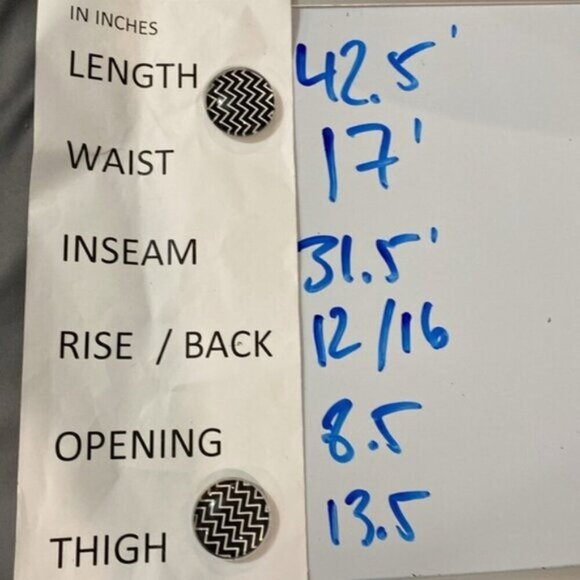 IN INCHES
LENGTH 42.5'
WAIST 17'
INSEAM 31.5'
RISE / BACK 12/16
OPENING 8.5
THIGH 13.5